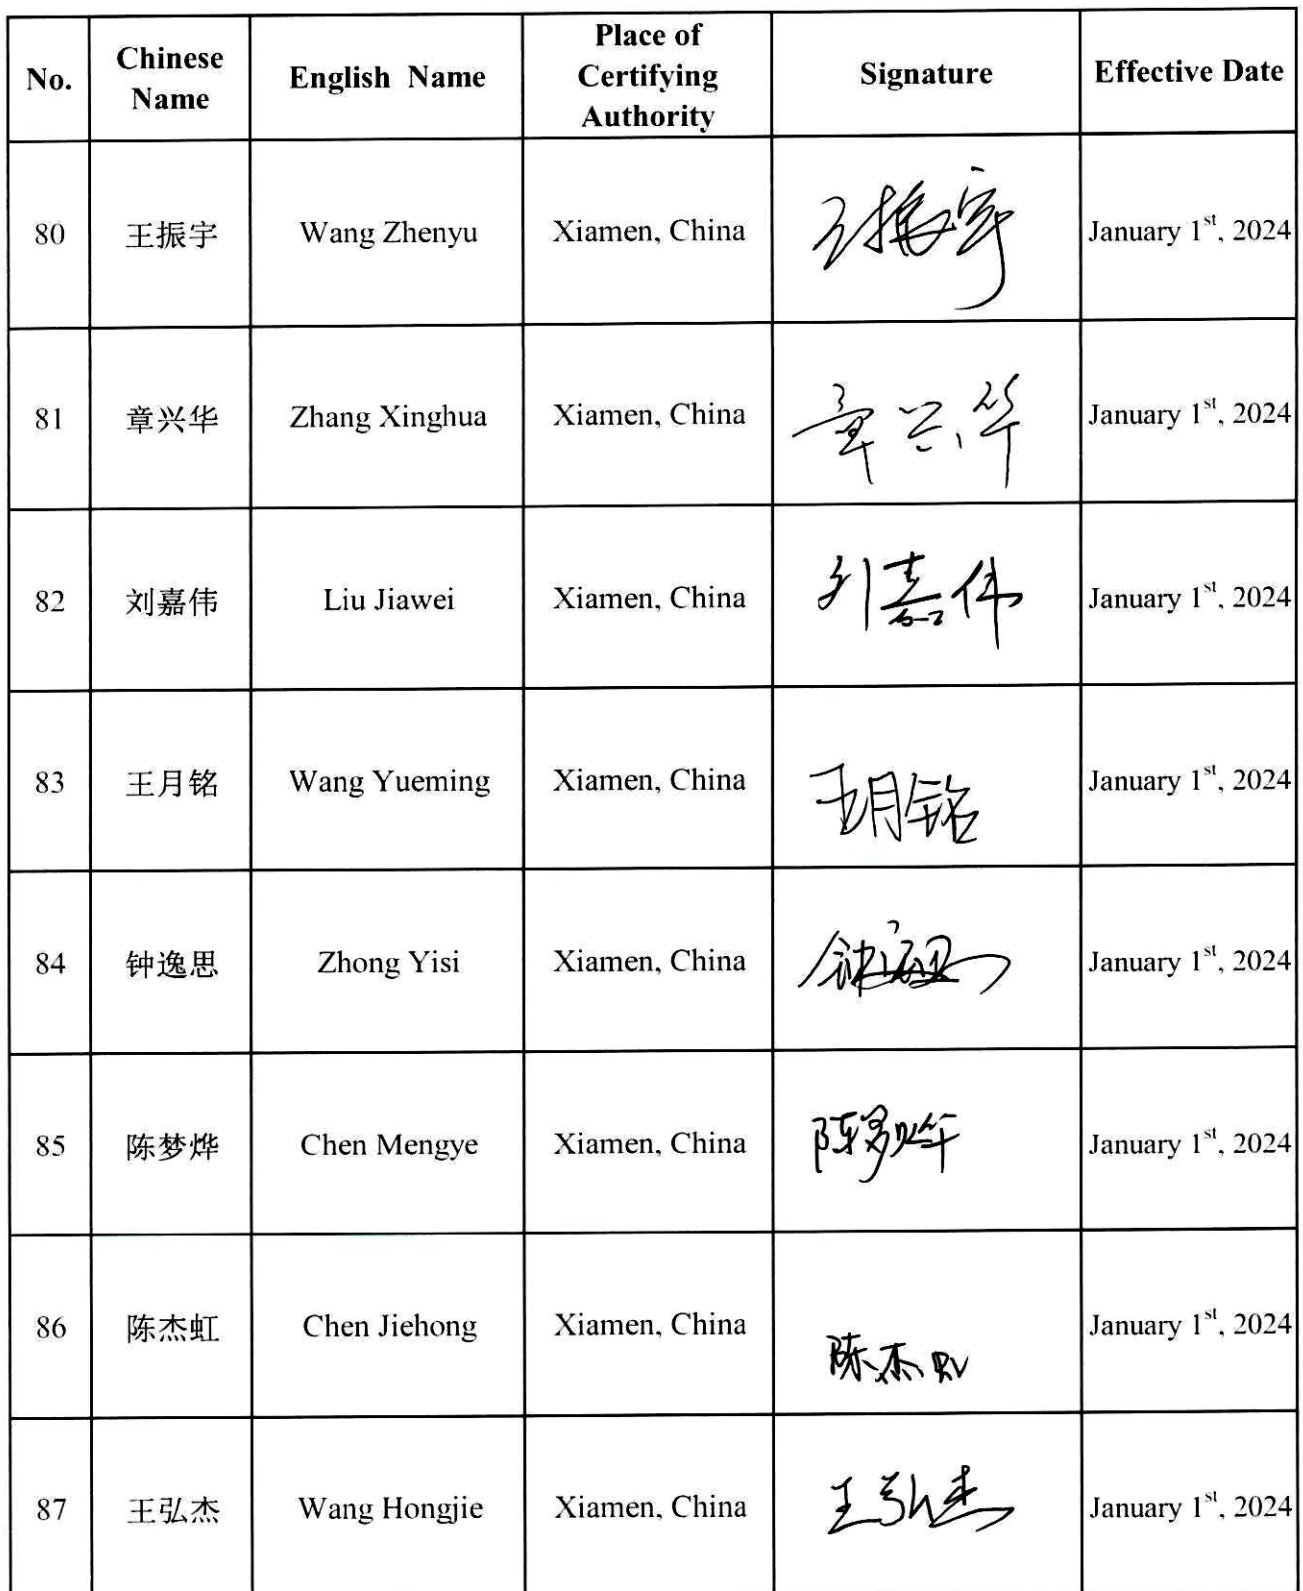 No. Chinese Name English Name Place of Certifying Authority Signature Effective Date
80 王振宇 Wang Zhenyu Xiamen, China 王振宇 January 1st, 2024
81 章兴华 Zhang Xinghua Xiamen, China 章兴华 January 1st, 2024
82 刘嘉伟 Liu Jiawei Xiamen, China 刘嘉伟 January 1st, 2024
83 王月铭 Wang Yueming Xiamen, China 王月铭 January 1st, 2024
84 钟逸思 Zhong Yisi Xiamen, China 钟逸思 January 1st, 2024
85 陈梦烨 Chen Mengye Xiamen, China 陈梦烨 January 1st, 2024
86 陈杰虹 Chen Jiehong Xiamen, China 陈杰虹 January 1st, 2024
87 王弘杰 Wang Hongjie Xiamen, China 王弘杰 January 1st, 2024